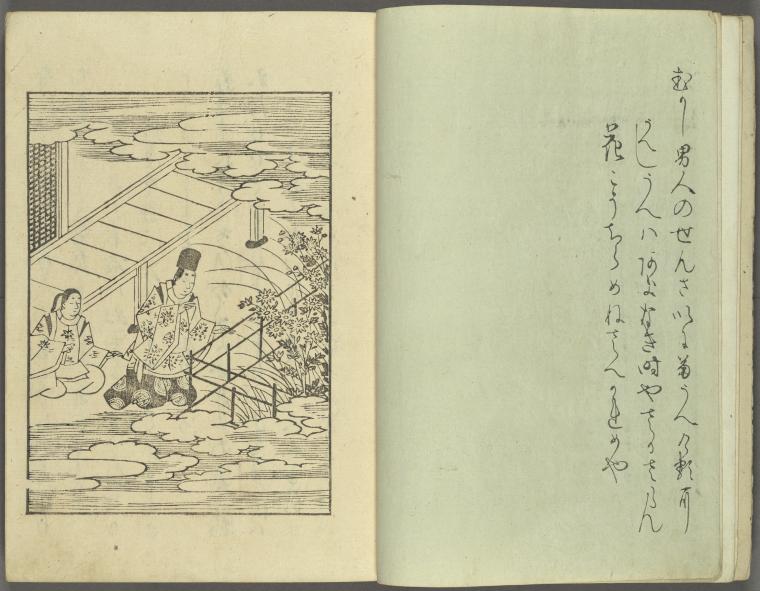 むかし男人のせんさいに菊うへけるに
うへしうへはあきなき時やさかさらん
花こそちらめねさへかれめや